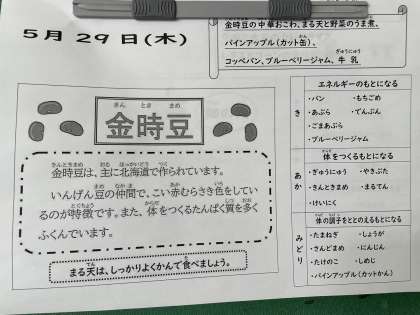 5月29日(木)
金時豆の中華おこわ、まる天と野菜のうま煮、
パインアップル(カット缶)、
コッペパン、ブルーベリージャム、牛乳
金時豆
金時豆は、主に北海道で作られています。
いんげん豆の仲間で、こい赤むらさき色をしてい
るのが特徴です。また、体をつくるたんぱく質を多く
ふくんでいます。
まる天は、しっかりよくかんで食べましょう。
き
エネルギーのもとになる
・パン ・もちごめ
・あぶら ・でんぷん
・ごまあぶら
・ブルーベリージャム
あか
体をつくるもとになる
・ぎゅうにゅう ・やきぶた
・きんときまめ ・まるてん
・けいにく
みどり
体の調子をととのえるもとになる
・たまねぎ ・しょうが
・さんどまめ ・にんじん
・たけのこ ・しめじ
・パインアップル(カットかん)